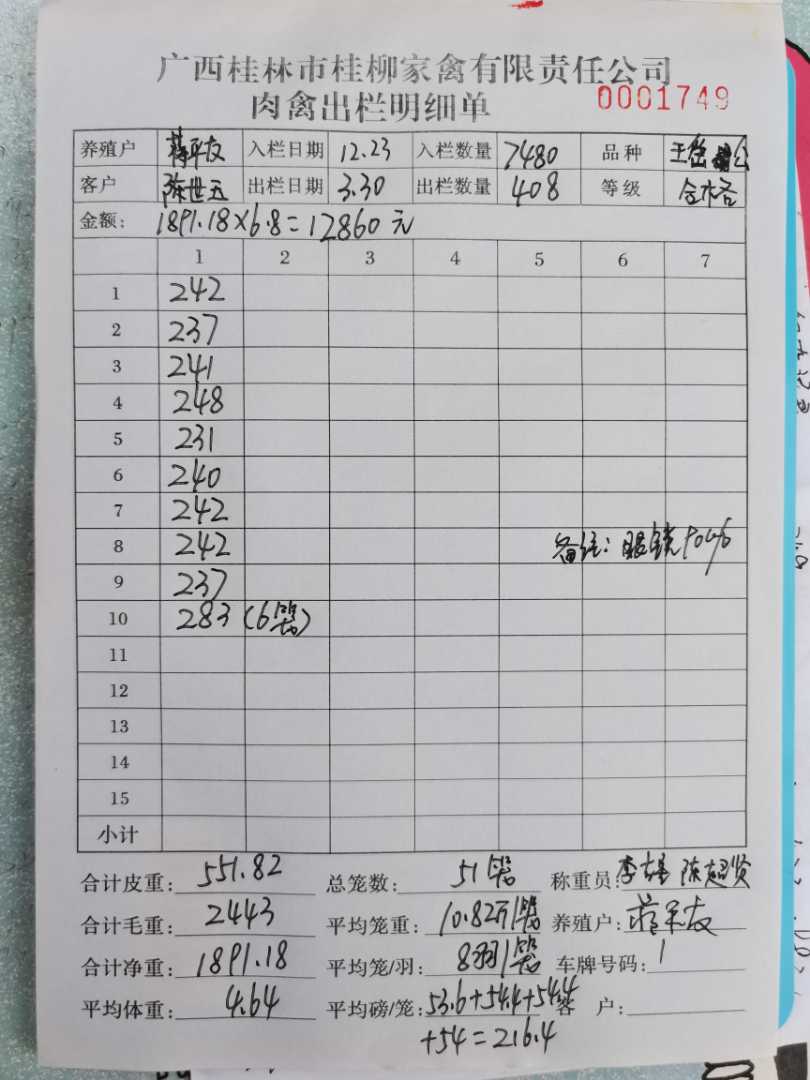 广西桂林市桂柳家禽有限责任公司
肉禽出栏明细单 0001749
养殖户 蒋平友 入栏日期 12.23 入栏数量 7480 品种
客户 陈世五 出栏日期 3.30 出栏数量 408 等级 合格
金额: 1891.18×6.8=12860元
1 2 3 4 5 6 7
1 242
2 237
3 241
4 248
5 231
6 240
7 242
8 242 备注:眼镜
9 237
10 283 (6笼)
11
12
13
14
15
小计
合计皮重: 551.82 总笼数: 51笼 称重员: 陈超贤
合计毛重: 2443 平均笼重: 10.82斤/笼 养殖户: 蒋平友
合计净重: 1891.18 平均笼/羽: 8羽/笼 车牌号码: 1
平均体重: 4.64 平均磅/笼: 53.6+54.4+54.4 客 户:
+54=216.4